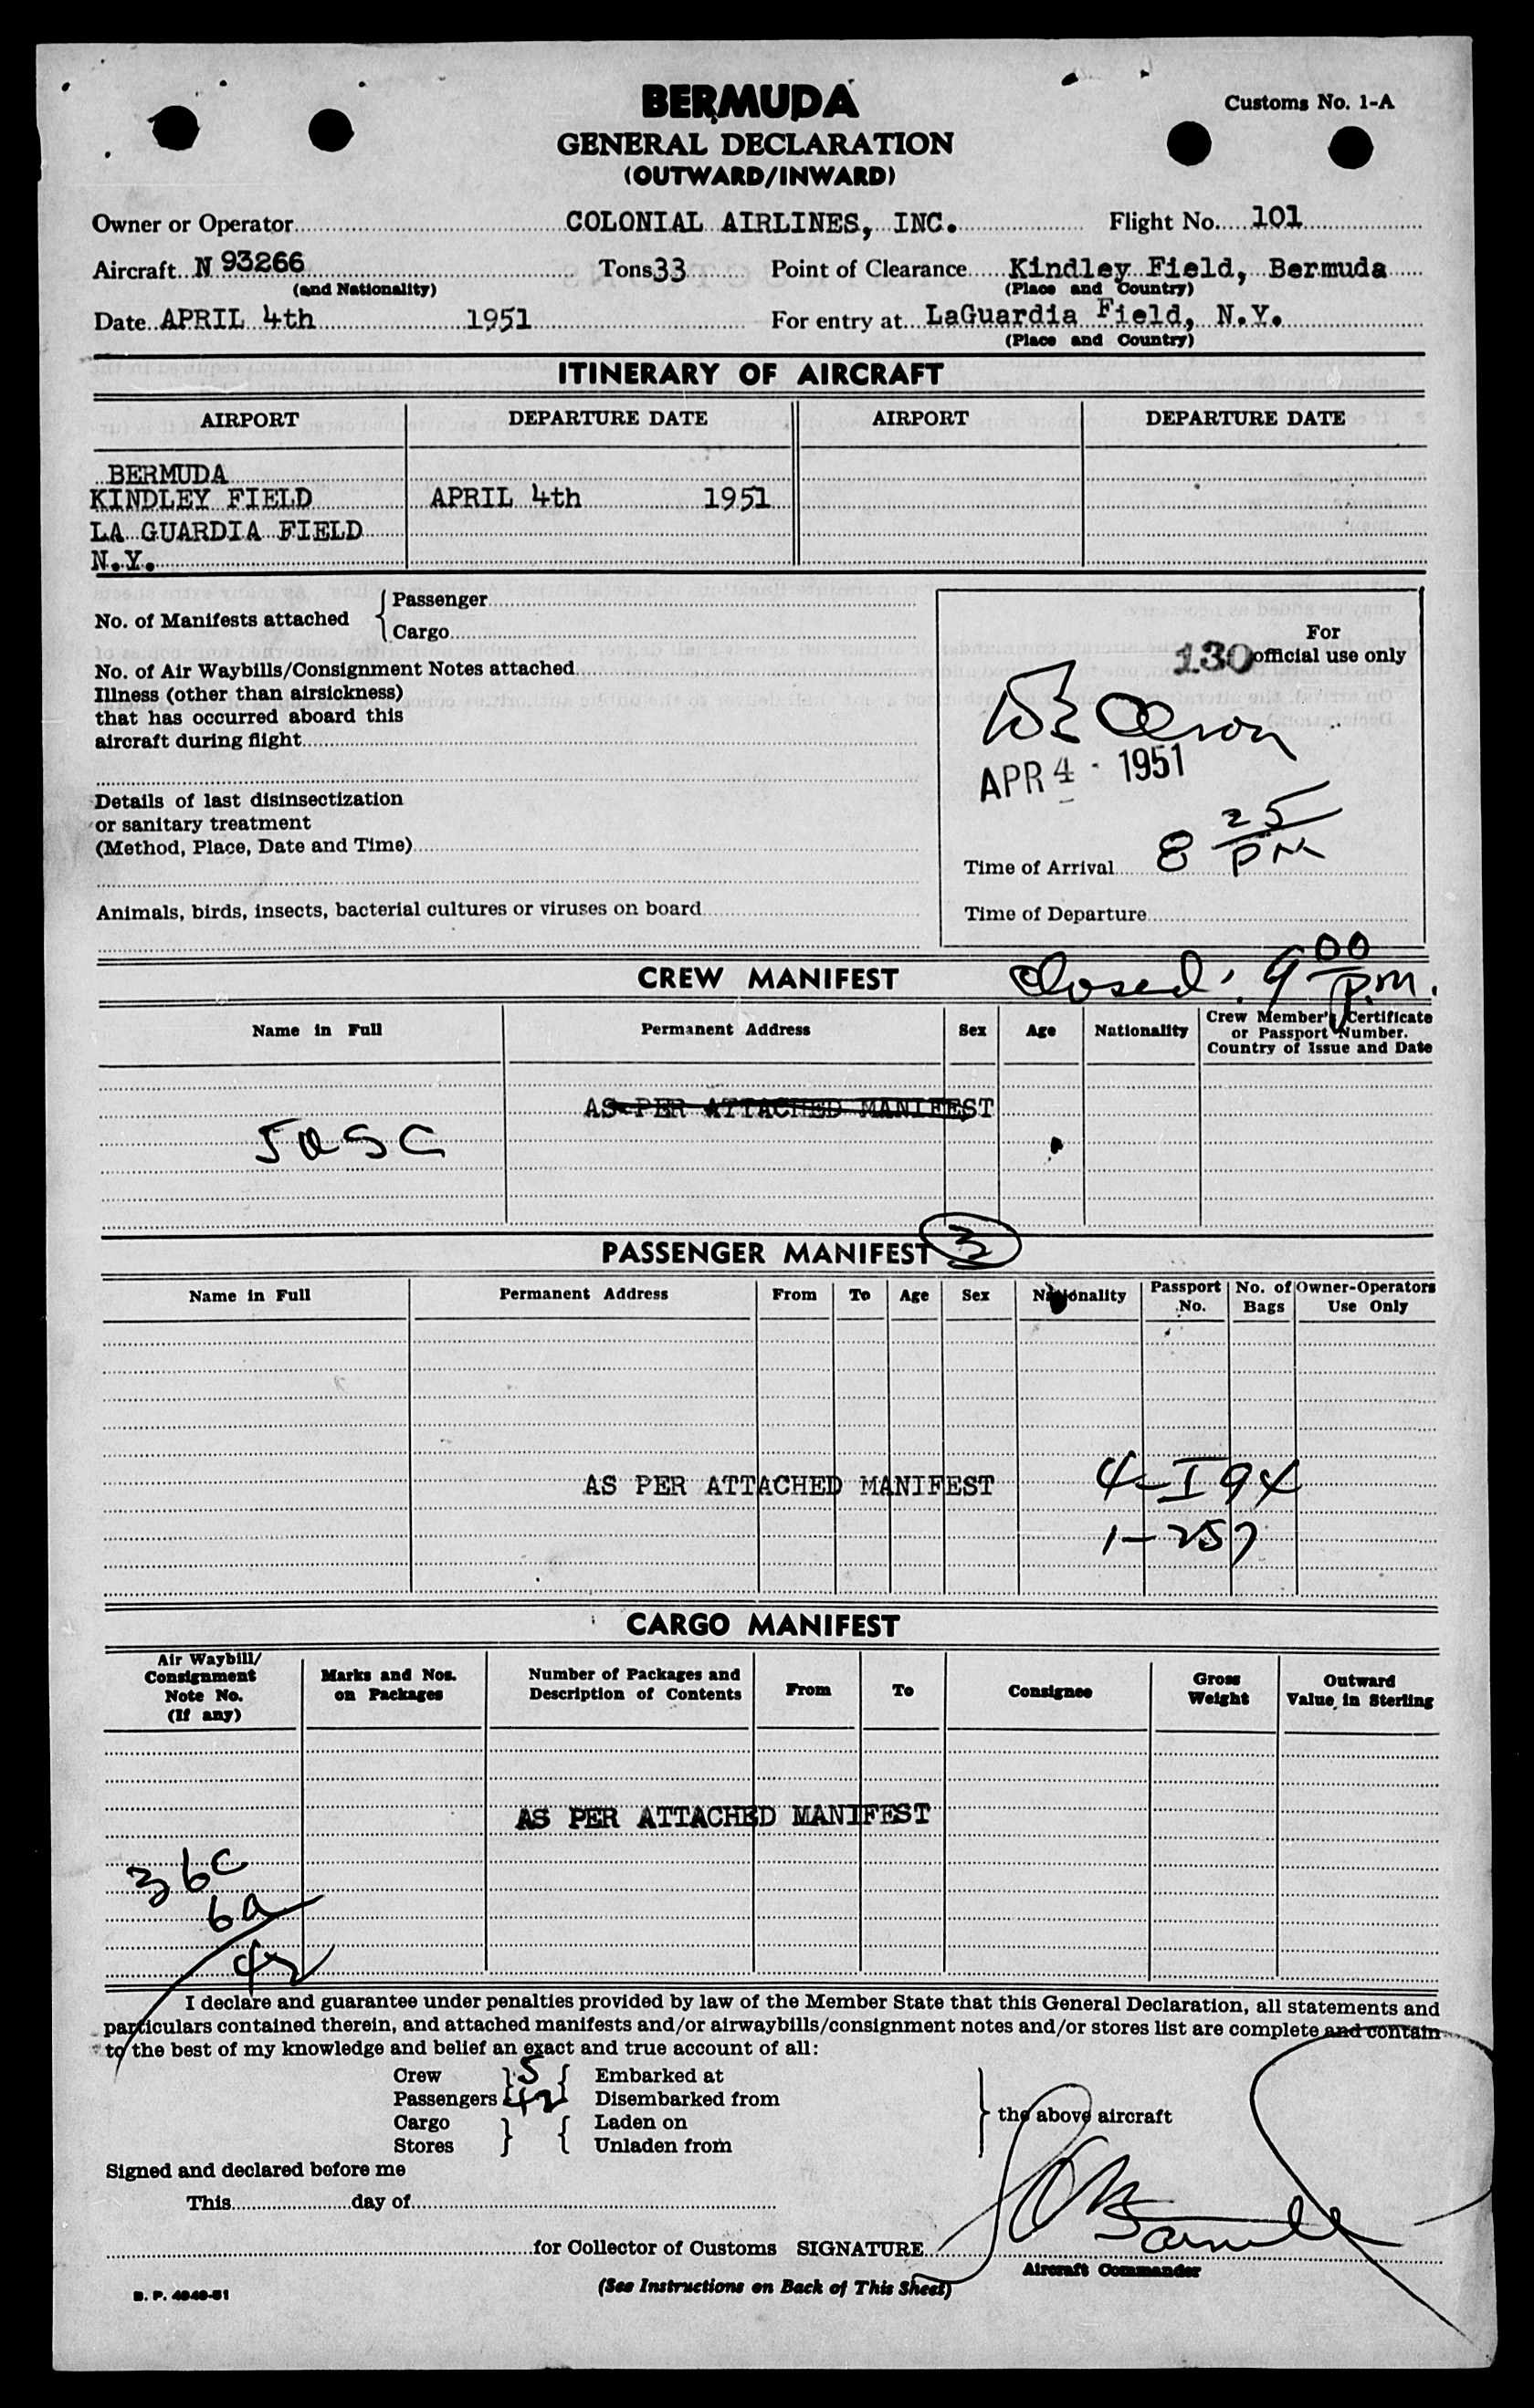 BERMUDA
Customs No. 1-A
GENERAL DECLARATION
(OUTWARD/INWARD)
Owner or Operator COLONIAL AIRLINES, INC. Flight No. 101
Aircraft N 93266 Tons 33 Point of Clearance Kindley Field, Bermuda
(and Nationality) (Place and Country)
Date APRIL 4th 1951 For entry at LaGuardia Field, N.Y.
(Place and Country)
ITINERARY OF AIRCRAFT
AIRPORT DEPARTURE DATE AIRPORT DEPARTURE DATE
BERMUDA
KINDLEY FIELD APRIL 4th 1951
LA GUARDIA FIELD
N.Y.
No. of Manifests attached { Passenger
Cargo
No. of Air Waybills/Consignment Notes attached
Illness (other than airsickness)
that has occurred aboard this
aircraft during flight
Details of last disinsectization
or sanitary treatment
(Method, Place, Date and Time)
Animals, birds, insects, bacterial cultures or viruses on board
For
130 official use only
APR 4 - 1951
Time of Arrival 8 25 PM
Time of Departure
closed: 9 00 P.M.
CREW MANIFEST
Name in Full Permanent Address Sex Age Nationality Crew Member's Certificate
or Passport Number.
Country of Issue and Date
AS PER ATTACHED MANIFEST
5 a s c
PASSENGER MANIFEST 3
Name in Full Permanent Address From To Age Sex Nationality Passport No. No. of Bags Owner-Operators Use Only
AS PER ATTACHED MANIFEST 4-I94
1-257
CARGO MANIFEST
Air Waybill/
Consignment
Note No.
(If any)
Marks and Nos.
on Packages
Number of Packages and
Description of Contents
From To Consignee
Gross
Weight
Outward
Value in Sterling
AS PER ATTACHED MANIFEST
36c
6a
42
I declare and guarantee under penalties provided by law of the Member State that this General Declaration, all statements and
particulars contained therein, and attached manifests and/or airwaybills/consignment notes and/or stores list are complete and contain
to the best of my knowledge and belief an exact and true account of all:
Crew } 5 { Embarked at
Passengers 42 Disembarked from
Cargo } { Laden on
Stores Unladen from
} the above aircraft
Signed and declared before me
This day of
for Collector of Customs SIGNATURE
Aircraft Commander
(See Instructions on Back of This Sheet)
B. P. 4040-51